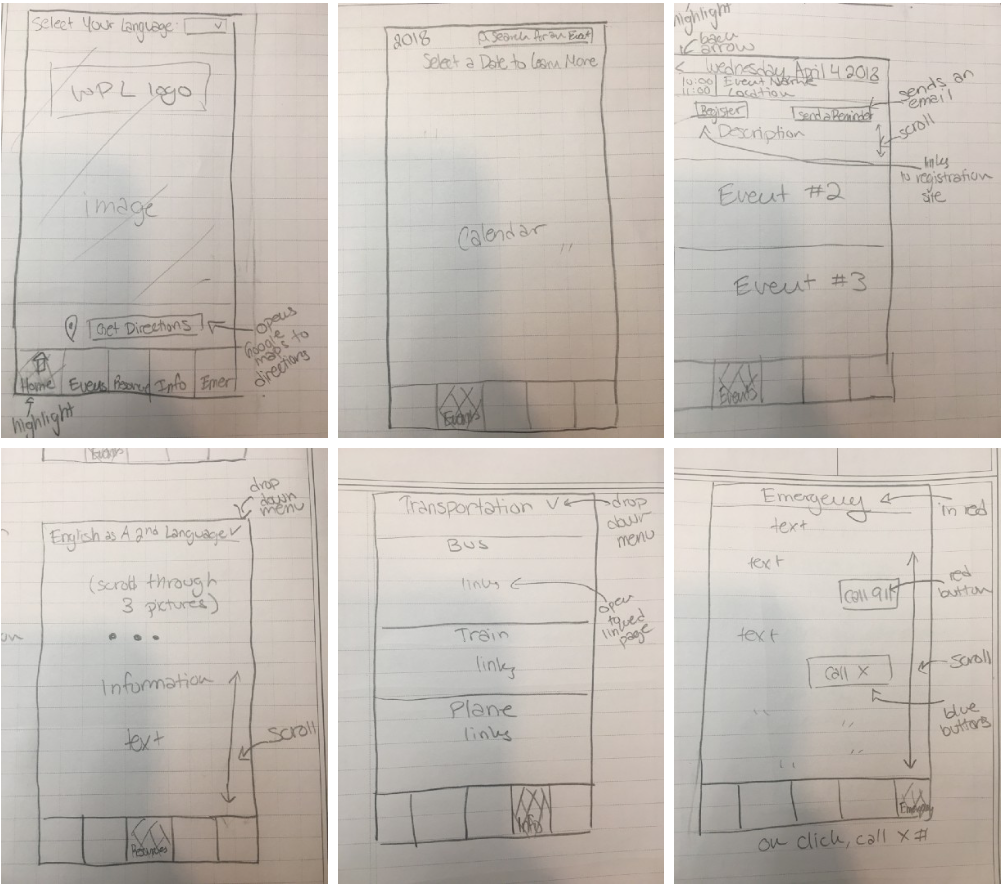 Select Your Language:
WPL logo
image
Get Directions
opens
Google
maps to
directions
Home
Events
Info
Emer
highlight
2018
Search for an Event
Select a Date to Learn More
Calendar
Events
highlight
back
arrow
< Wednesday, April 4 2018
10:00 Event Name
11:00 Location
Register
Send a Reminder
sends an
email
Description
scroll
links
to registration
site
Event #2
Event #3
Events
Events
drop
down
menu
English as A 2nd Language
(scroll through
3 pictures)
Information
text
scroll
Resources
Transportation
drop
down
menu
Bus
links
open
linked
page
Train
links
Plane
links
Info
Emergency
in red
text
text
Call 911
red
button
text
Call X
scroll
blue
buttons
Emergency
on click, call X #